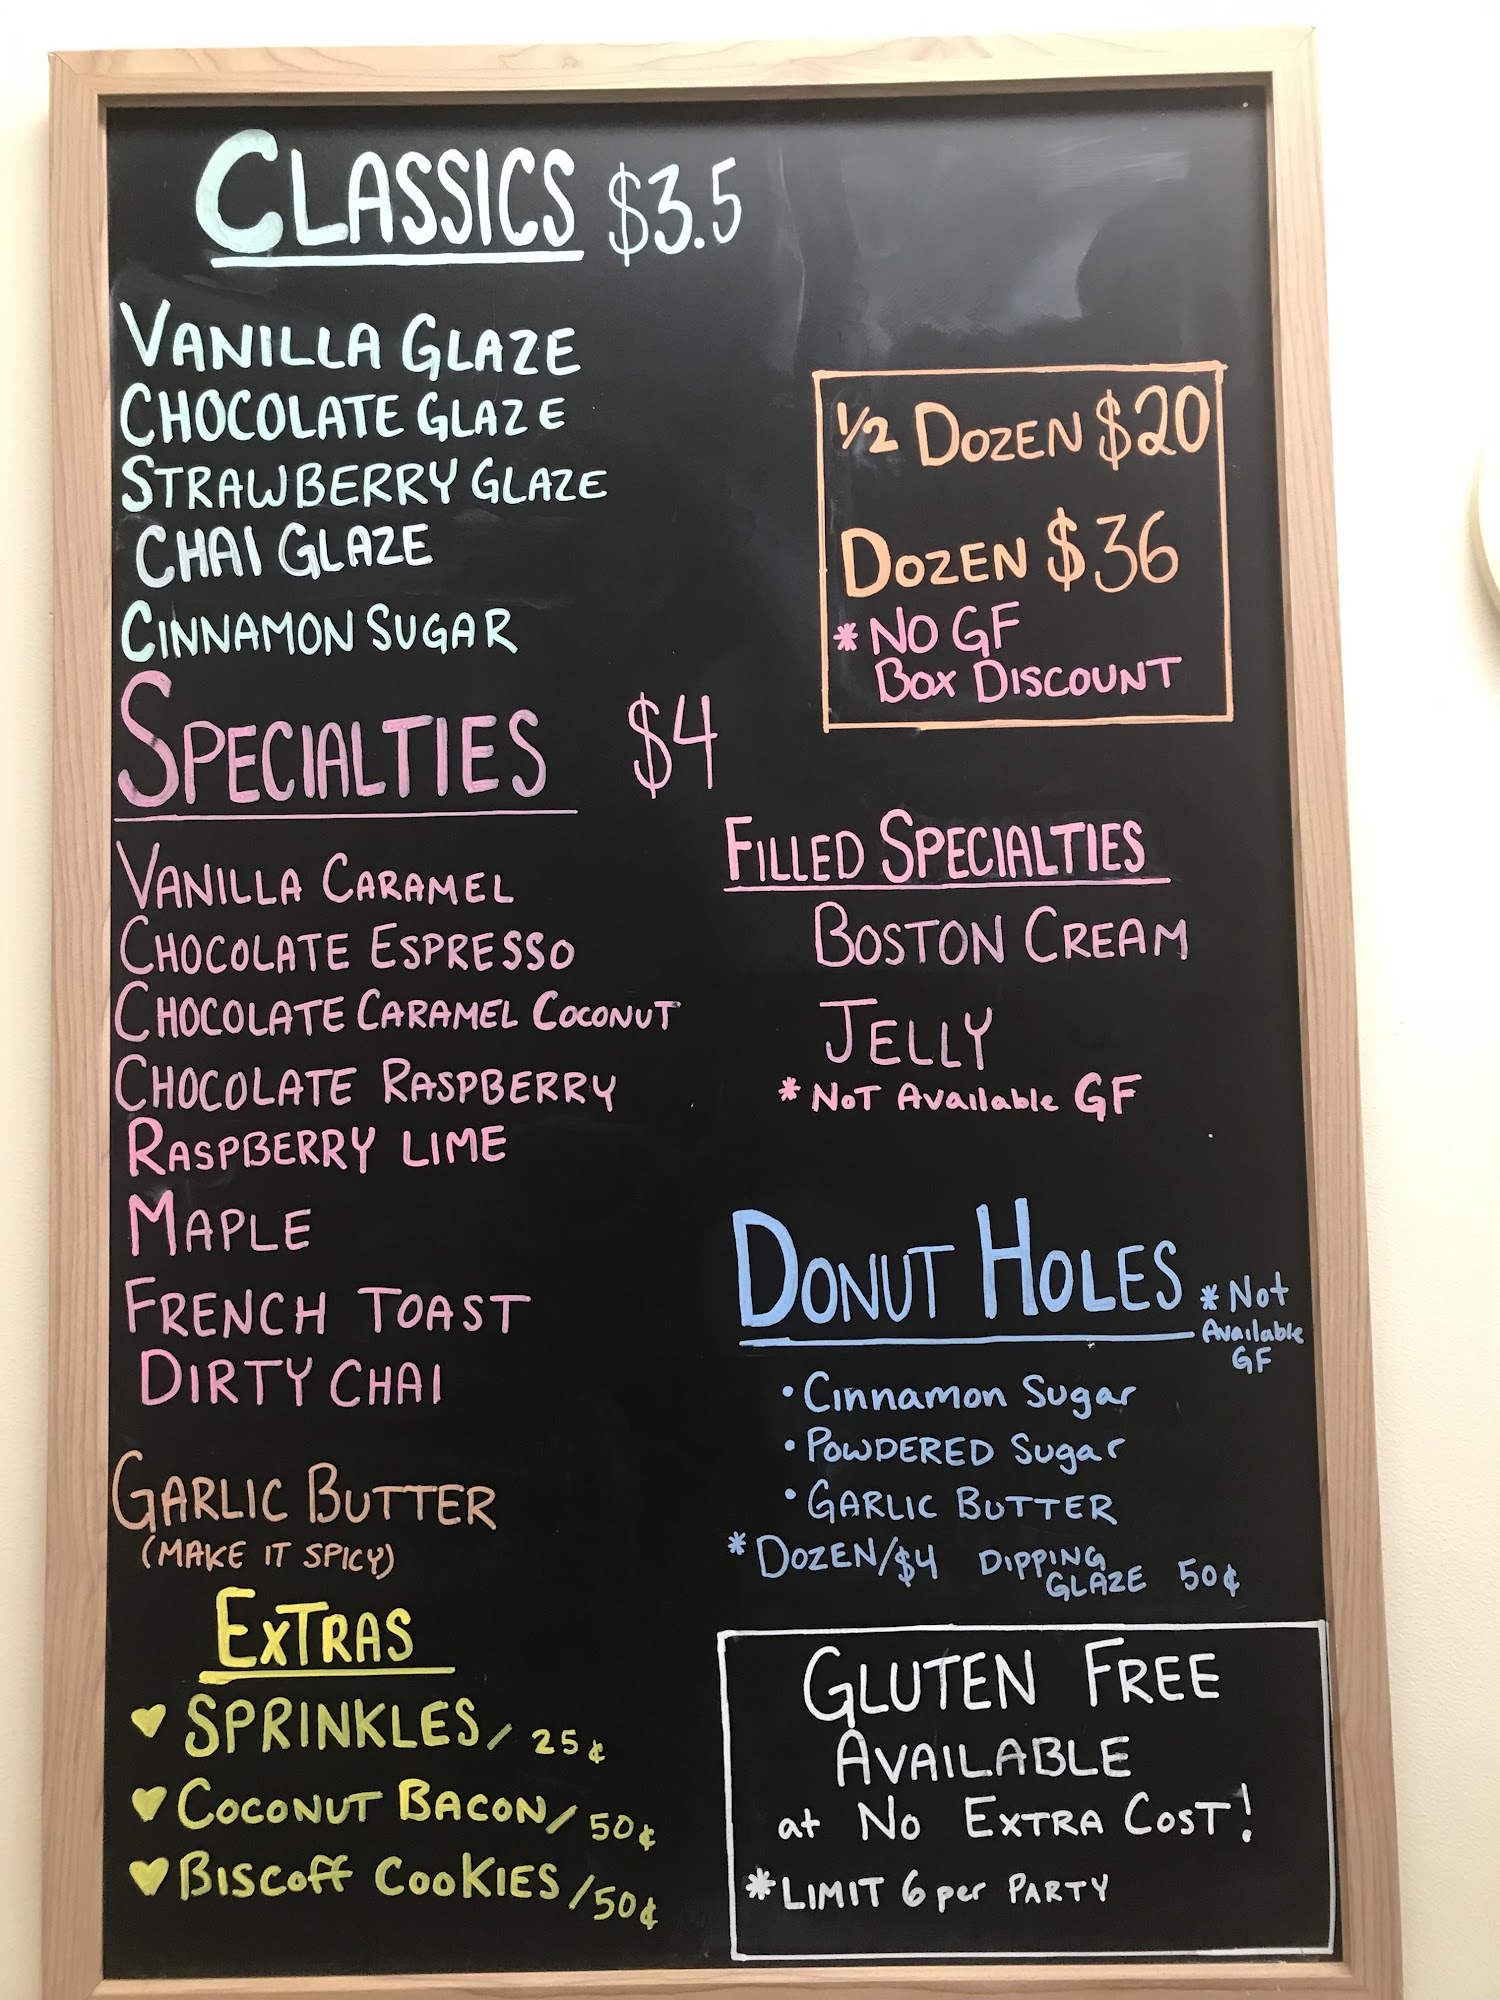 CLASSICS $3.5
VANILLA GLAZE
CHOCOLATE GLAZE
STRAWBERRY GLAZE
CHAI GLAZE
CINNAMON SUGAR
SPECIALTIES $4
VANILLA CARAMEL
CHOCOLATE ESPRESSO
CHOCOLATE CARAMEL COCONUT
CHOCOLATE RASPBERRY
RASPBERRY LIME
MAPLE
FRENCH TOAST
DIRTY CHAI
GARLIC BUTTER
(MAKE IT SPICY)
EXTRAS
♥ SPRINKLES/ 25¢
♥ COCONUT BACON/ 50¢
♥ BISCOFF COOKIES/50¢
1/2 DOZEN $20
DOZEN $36
* NO GF
BOX DISCOUNT
FILLED SPECIALTIES
BOSTON CREAM
JELLY
* NOT Available GF
DONUT HOLES
* Not
Available
GF
• Cinnamon Sugar
• POWDERED Sugar
• GARLIC BUTTER
* DOZEN/$4 DIPPING
GLAZE 50¢
GLUTEN FREE
AVAILABLE
at No EXTRA COST!
* LIMIT 6 per PARTY